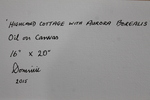 'HIGHLAND COTTAGE WITH AURORA BOREALIS
Oil on Canvas
16" x 20"
2015